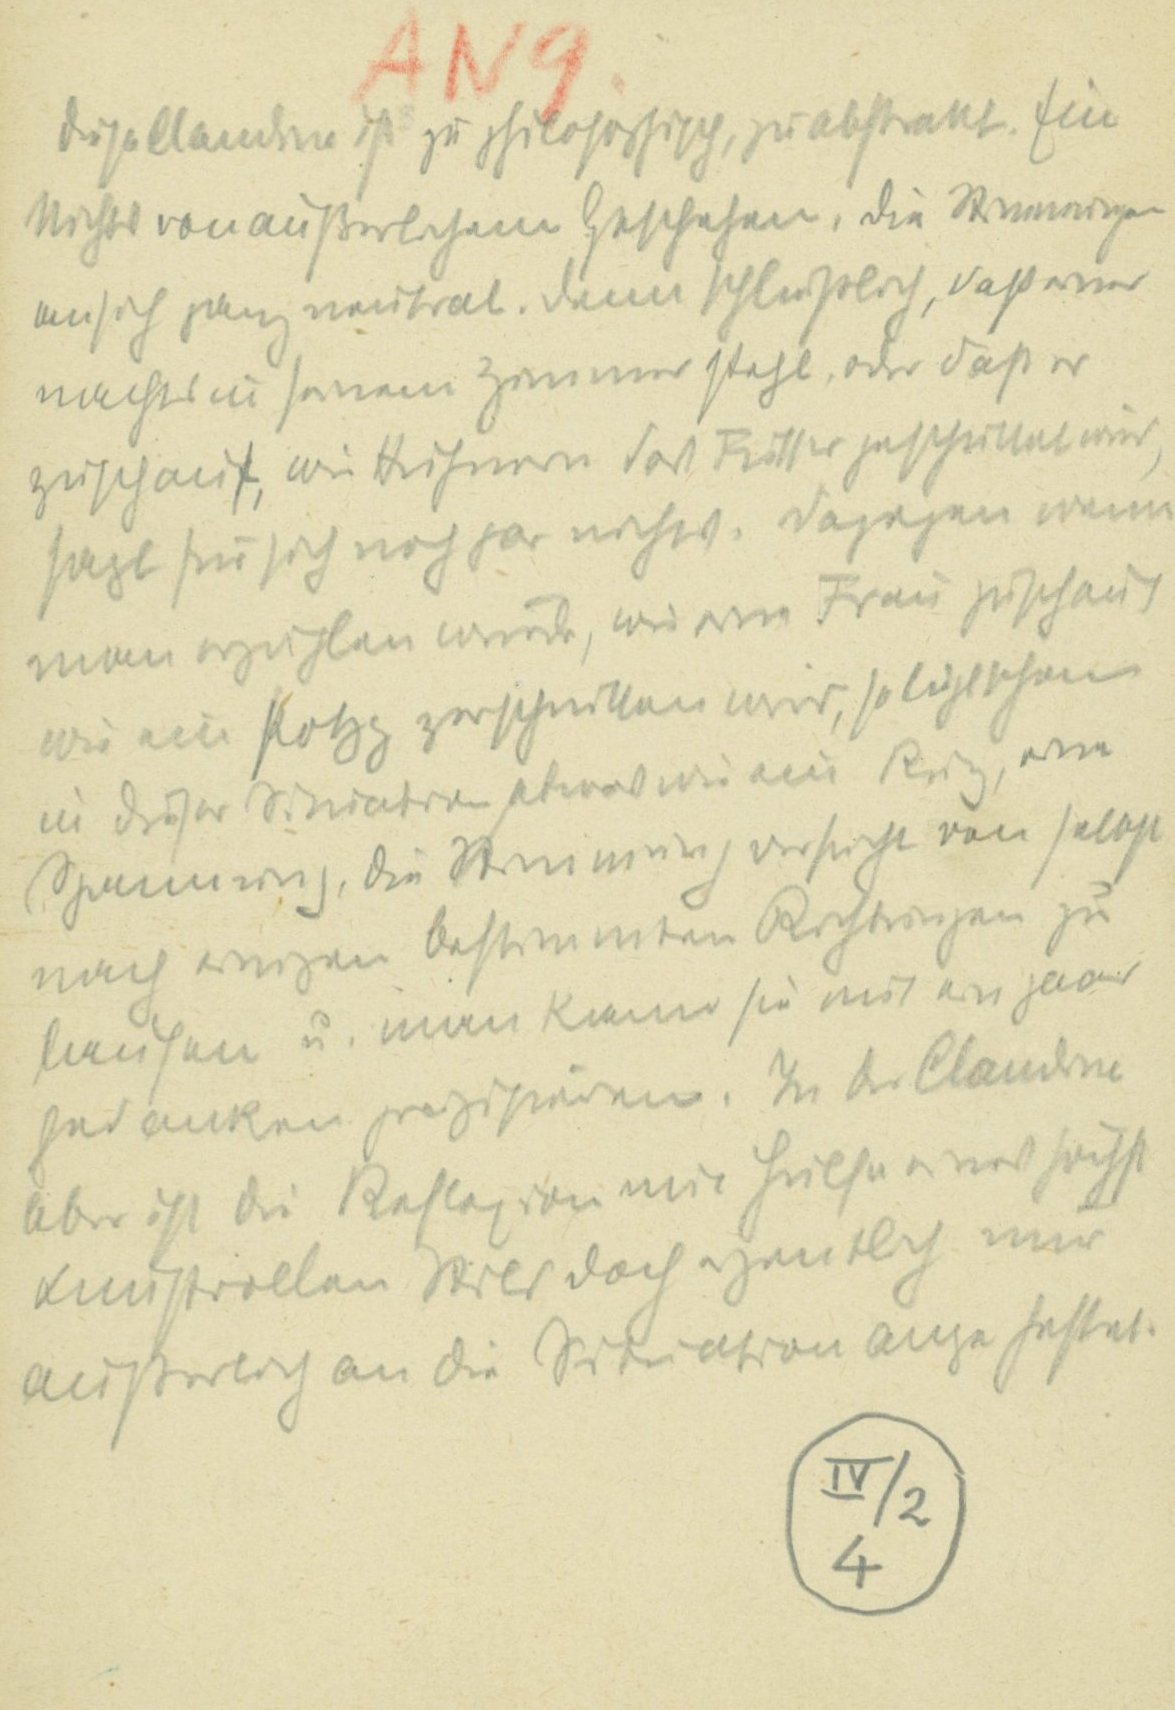 AN 9.
Diese Claudine ist zu philosophisch, zu abstrakt. Ein
Nichts von äußerlichem Geschehen, die Stimmungen
an sich ganz neutral. Denn schließlich, daß einer
nachts in seinem Zimmer steht, oder daß er
zuschaut, wie Hühnern das Futter geschüttet wird,
sagt für sich noch gar nichts. Dagegen wenn
man erzählen würde, wie eine Frau zuschaut
wie ein zerschnitten wird, so liegt schon
in dieser Situation etwas wie ein Reiz, eine
Spannung, die Stimmung versucht von selbst
nach einigen bestimmten Richtungen zu
laufen u. man kann sie mit ein paar
Gedanken präzisieren. In der Claudine
aber ist die Reflexion mit Hilfe eines höchst
kunstvollen Stils doch eigentlich nur
äußerlich an die Situation angeheftet.
IV/2
4